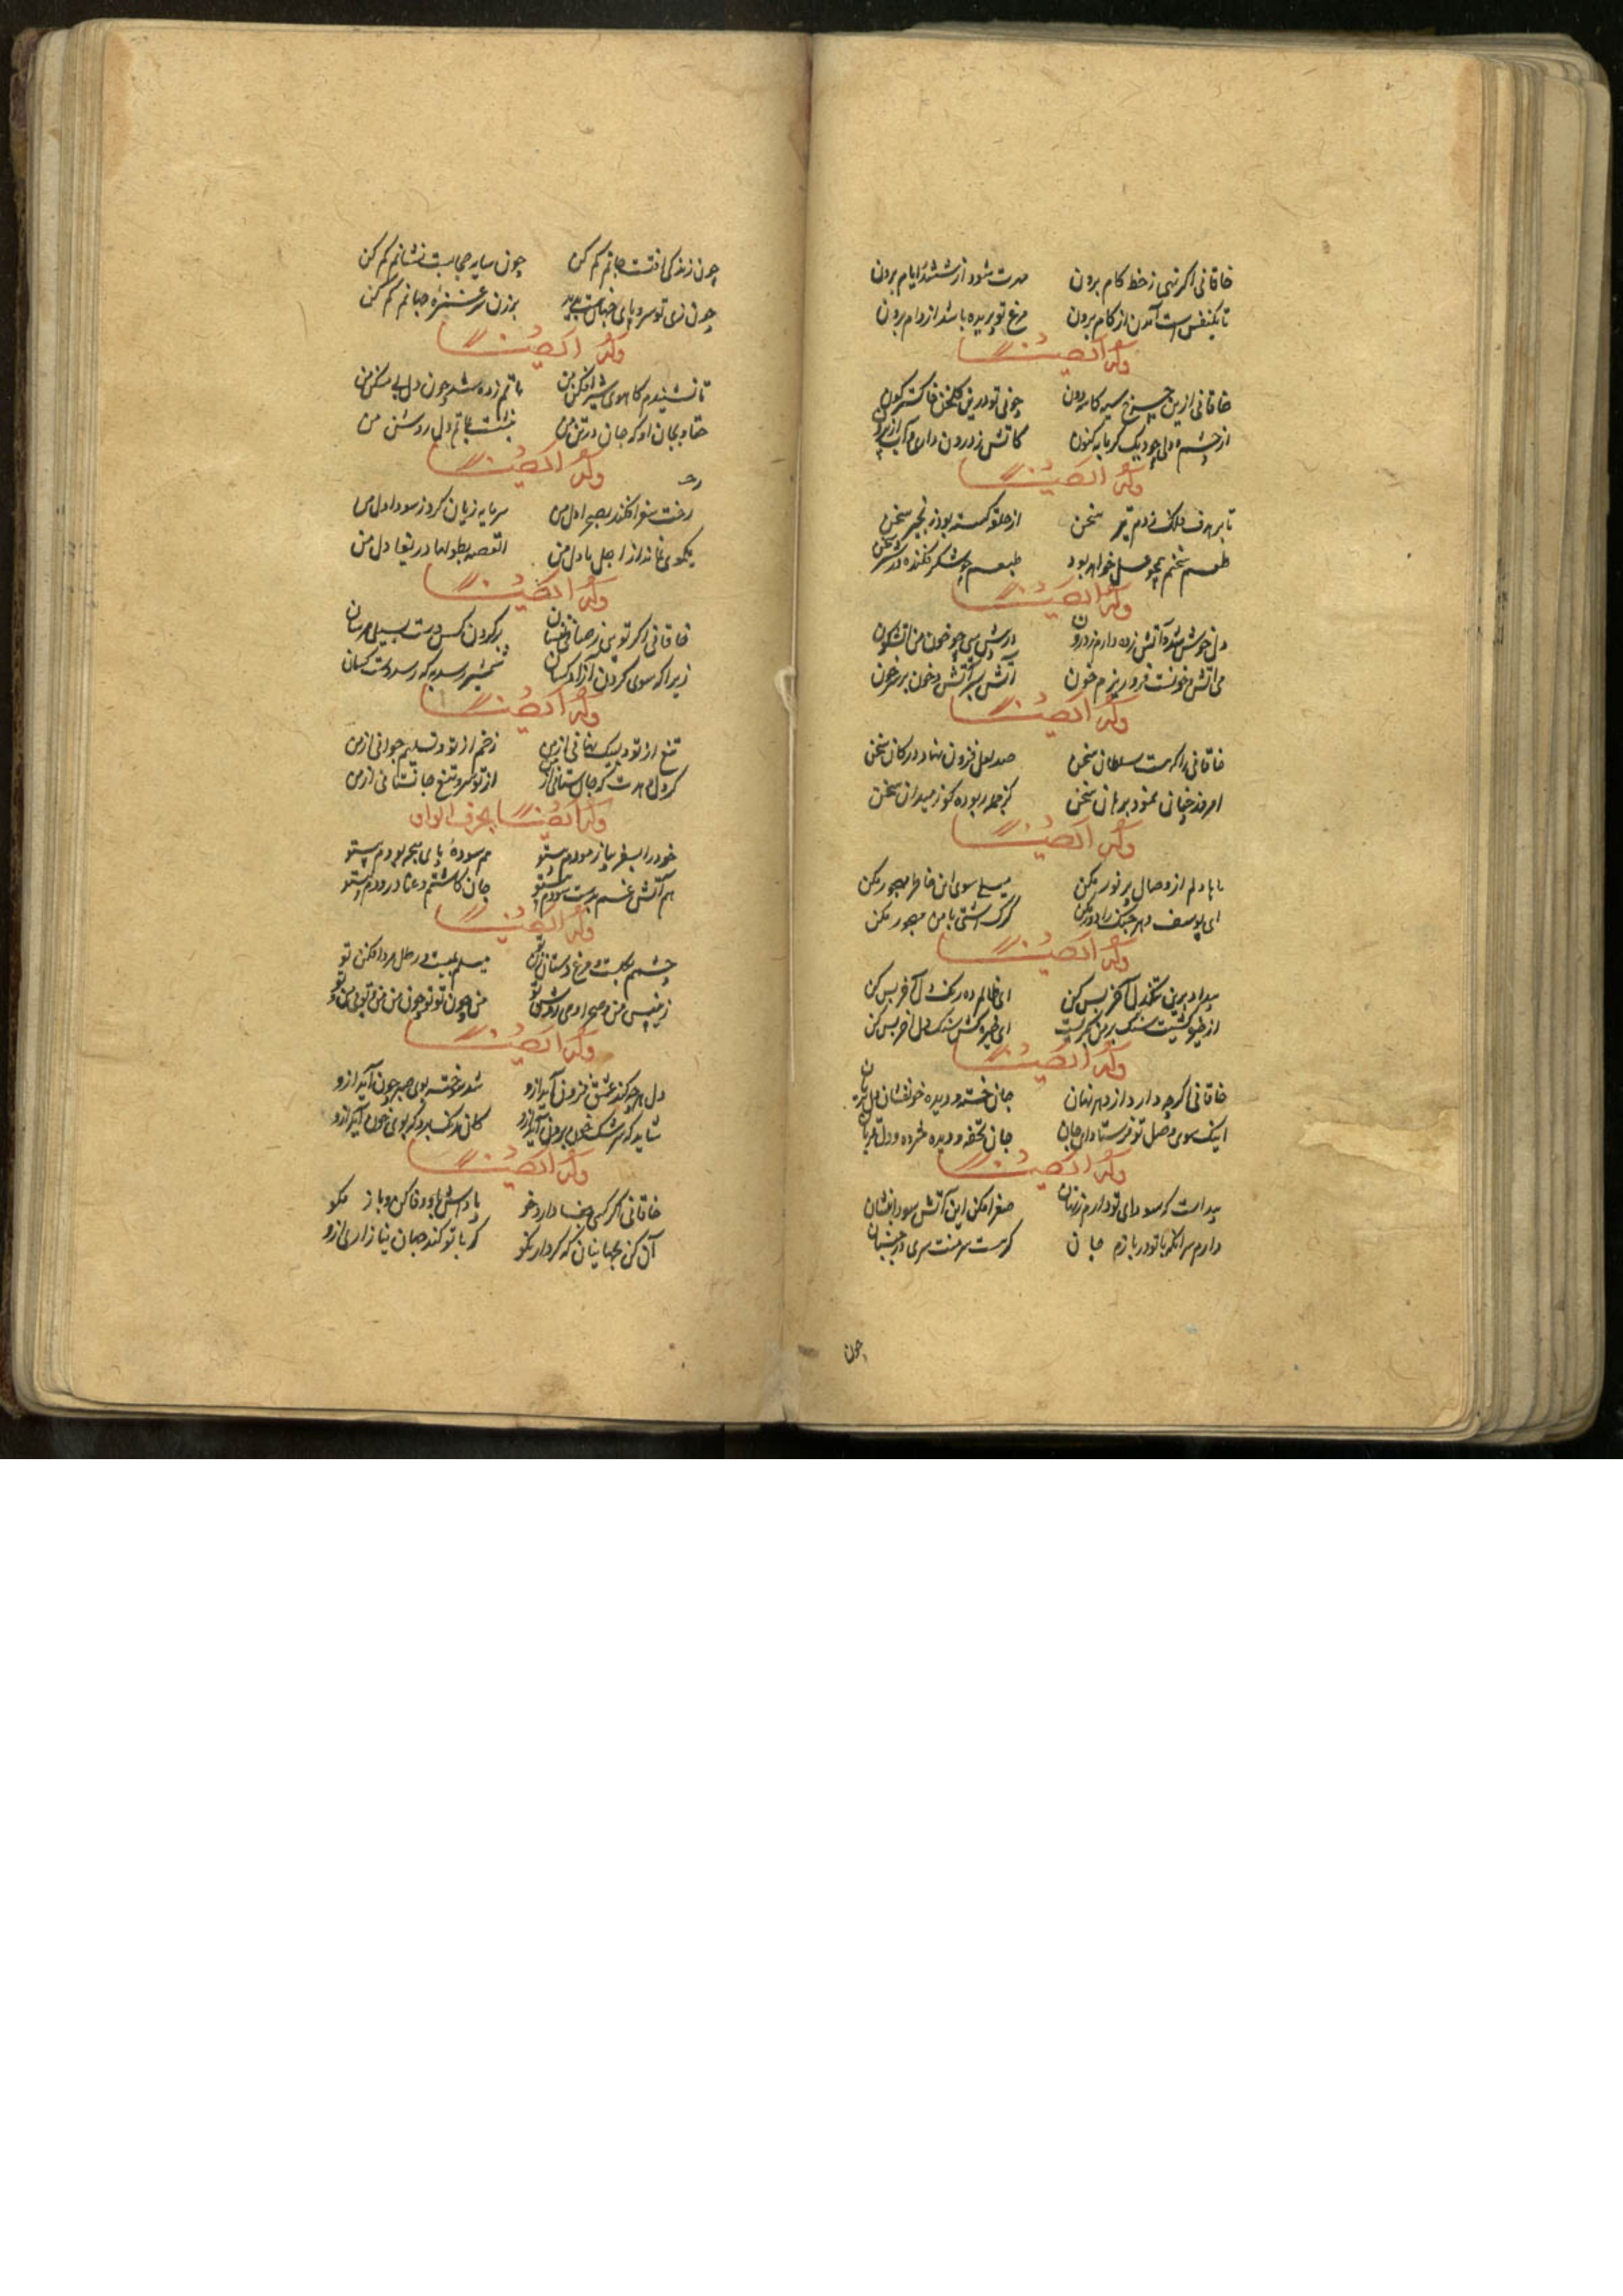 خاقانی اگر نهی ز خط کام برون مهرت شود از ششدر ایام برون
تا یکنفس است آمدن از کام برون مرغ تو پریده باشد از دام برون
وله ایضا
خاقانی ازین چرخ سیه کاسه دون چونی تو درین گلخن خاکسترگون
از چشمه دلی چو دیک گرمابه کنون کاتش ز درون داری و آب از برون
وله ایضا
تا بر هدف فلک زدم تیر سخن از حلقه گسسته بود زنجیر سخن
طعم سخنم همچو عسل خواهد بود طبعم چو شکر فکنده در شیر سخن
وله ایضا
دل خوش شد و آتش زده دارم ز درون
می آتش و خونست فرو ریزم خون آتش بسر آتش و خون بر سر خون
وله ایضا
خاقانی را که هست سلطان سخن صد لعل فزون نهاد در کان سخن
امروز چنان نمود برهان سخن کز جمله ربوده گوز میدان سخن
وله ایضا
ما با دلم از وصال پر نور مکن میلی سوی این خاطر مهجور مکن
ای یوسف دهر جنک را دور مکن گرگ آشتی با من مهجور مکن
وله ایضا
بیداد برین تنگدل آخر بس کن ای ظالم ده رنگ دل آخر بس کن
ای خیره کش سنگ دل آخر بس کن
وله ایضا
خاقانی اگرچه دارد از دهر نهان جان خسته و دیده خونفشان دل بریان
اینک سوی وصل تو فرستاد ای جان جان تحفه و دیده خرده و دل قربان
وله ایضا
پیداست که سودای تو دارم ز نهان صفرا مکن این آتش سودا بنشان
دارم سر آنکه با تو در بازم جان گر هست سر منت سری در جنبان
چون
چون زندگی آفتست جانم گم کن چون سایه حجابست نشانم گم کن
چون زی تو سر و پای جهان هست پدید برزن سر غمزه جهانم گم کن
وله ایضا
تا نشنیدم کاهوی شیرافکن من ماتم زده شد چون دل بی مسکن من
حقا و بجان او که جان در تن من بنشست بماتم دل روشن من
وله ایضا
رخت سفر افکند بصحرا دل من سرمایه زیان کرد ز سودا دل من
یکموی نماند از اجل با دل من القصه بطولها دریغا دل من
وله ایضا
خاقانی اگر تویی ز صافی نفسان بر گردن کس دست بسیلی مرسان
زیرا که سوی گردن آزاد کسان شمشیر رسد به که رسد دست کسان
وله ایضا
تیغ از تو و لبیک نهانی از من زخم از تو و تسلیم جوانی از من
گر دل دهدت که جان ستانی از من از تو سر و تیغ جانفشانی از من
وله ایضا بحرف الواو
خود را بسفر بیازمودم بیتو هم سوده پای هجر بودم بیتو
هم آتش غم بدست سودم بیتو جان کاشتم و عنا درودم بیتو
وله ایضا
چشمم بگلست و مرغ دستان زن تو میلم بمیست و رطل مردافکن تو
زین پس من و صحرا و می روشن تو من چون تو تو چون من من و تو بی من و تو
وله ایضا
دل هرچه کند عشق فزون آید ازو شد سوخته بوی صبر چون آید ازو
شاید که سرشک خون برون آید ازو کان رنگ برد که بوی خون آید ازو
وله ایضا
خاقانی اگر کسی جفا دارد خو پاداش بدو وفا کن و باز مگو
آن کن بجهانیان که کردار نکو گر با تو کنند جهان نیازاری ازو